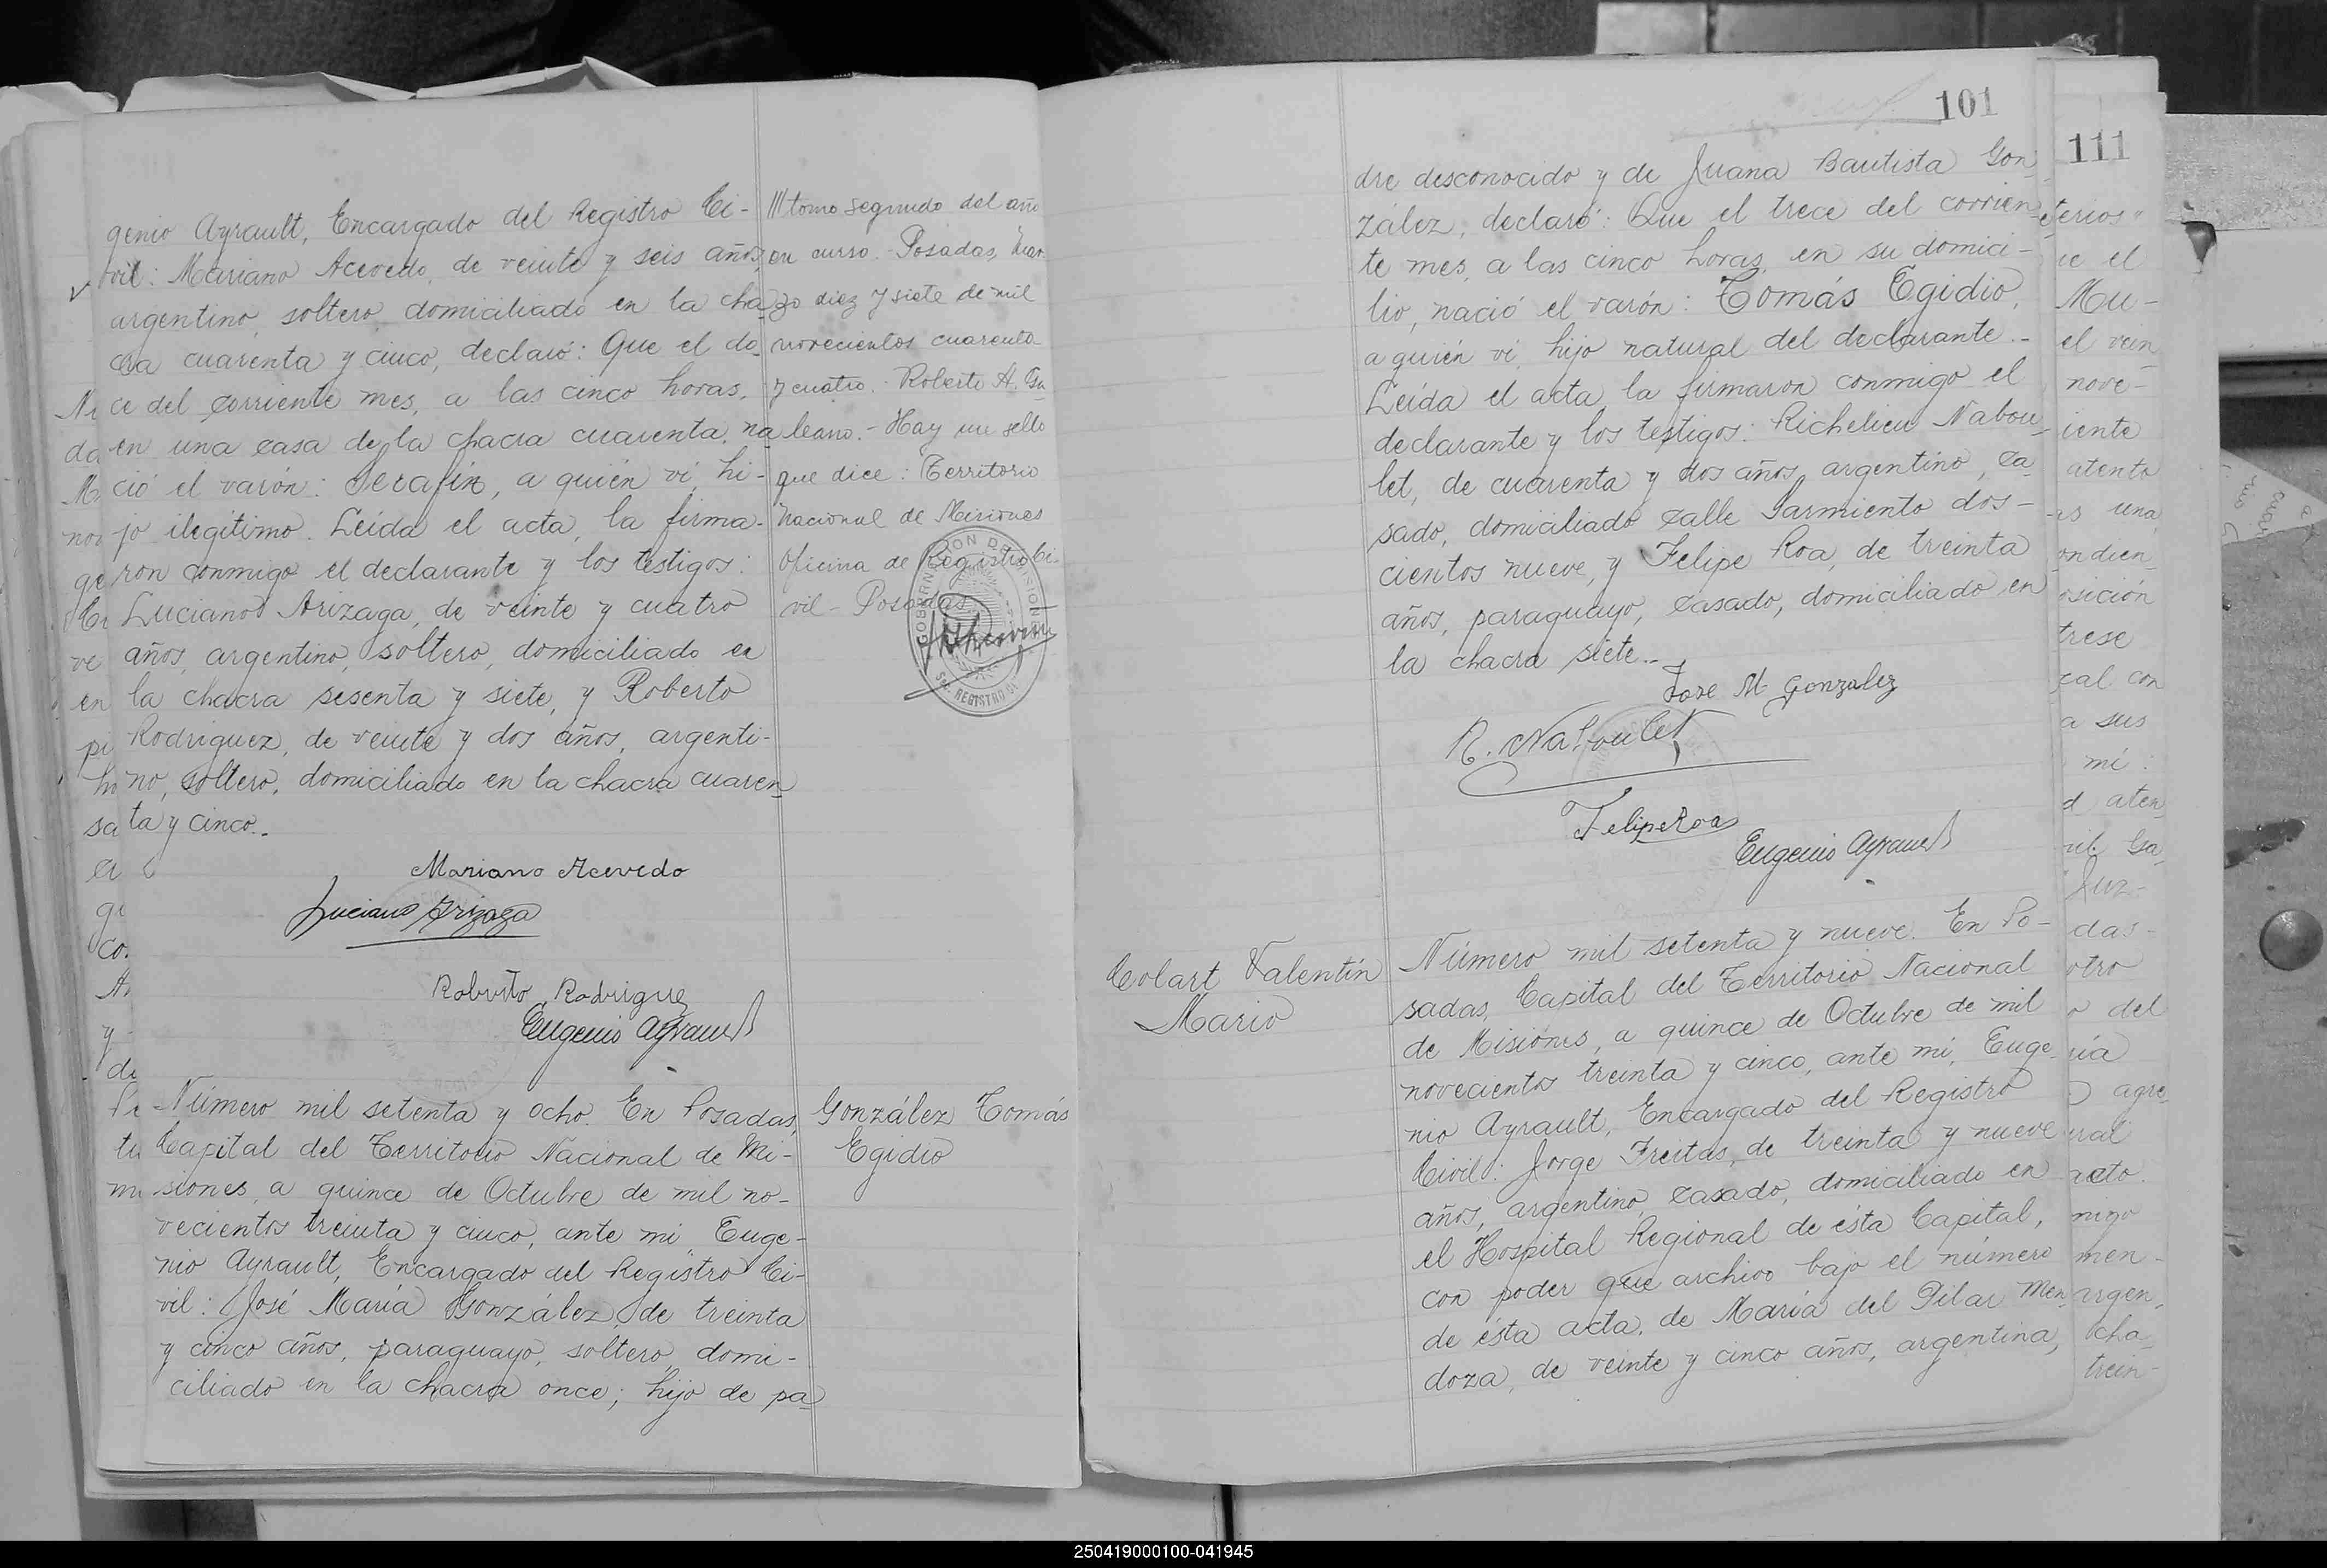 genio Ayrault, Encargado del Registro Ci-
vil: Mariano Acevedo, de veinte y seis años,
argentino, soltero, domiciliado en la cha-
cra cuarenta y cinco, declaró: Que el do-
ce del corriente mes, a las cinco horas,
en una casa de la chacra cuarenta, na-
ció el varón: Serafín, a quién ví, hi-
jo ilegítimo. Leída el acta, la firma-
ron conmigo el declarante y los testigos:
Luciano Arizaga, de veinte y cuatro
años, argentino, soltero, domiciliado en
la chacra sesenta y siete, y Roberto
Rodriguez, de veinte y dos años, argenti-
no, soltero, domiciliado en la chacra cuaren-
ta y cinco.-
Mariano Acevedo
Luciano Arizaga
Roberto Rodriguez
Eugenio Ayrault
III tomo segundo del año
en curso.- Posadas, Mar-
zo diez y siete de mil
novecientos cuarenta
y cuatro.- Roberto A. Ga-
leano.- Hay un sello
que dice: Territorio
Nacional de Misiones
Oficina de Registro Ci-
vil - Posadas
Número mil setenta y ocho. En Posadas,
Capital del Territorio Nacional de Mi-
siones, a quince de Octubre de mil no-
vecientos treinta y cinco, ante mi, Euge-
nio Ayrault, Encargado del Registro Ci-
vil: José María González, de treinta
y cinco años, paraguayo, soltero, domi-
ciliado en la chacra once; hijo de pa-
González Tomás
Egidio
101
dre desconocido y de Juana Bautista Gon-
zález, declaró: Que el trece del corrien-
te mes, a las cinco horas, en su domici-
lio, nació el varón: Tomás Egidio,
a quién ví, hijo natural del declarante.-
Leída el acta la firmaron conmigo el
declarante y los testigos: Richelieu Nabou-
let, de cuarenta y dos años, argentino, ca-
sado, domiciliado calle Sarmiento dos-
cientos nueve, y Felipe Roa, de treinta
años, paraguayo, casado, domiciliado en
la chacra siete.-
Jose M Gonzalez
R. Naboulet
Felipe Roa
Eugenio Ayrault
Colart Valentín
Mario
Número mil setenta y nueve. En Po-
sadas, Capital del Territorio Nacional
de Misiones, a quince de Octubre de mil
novecientos treinta y cinco, ante mi, Euge-
nio Ayrault, Encargado del Registro
Civil: Jorge Freitas, de treinta y nueve
años, argentino, casado, domiciliado en
el Hospital Regional de ésta Capital,
con poder que archivo bajo el número
de ésta acta, de María del Pilar Men-
doza, de veinte y cinco años, argentina,
111
terios"
ue el
Mu-
el vein-
nove-
iente
atento
as una
ondien-
osición
trese
zal con
a sus
mi:
d aten
vil Ga
Juz-
das-
otro
o del
uía
agre-
ural
acto.
migo
men-
argen-
cha-
trein-
250419000100-041945